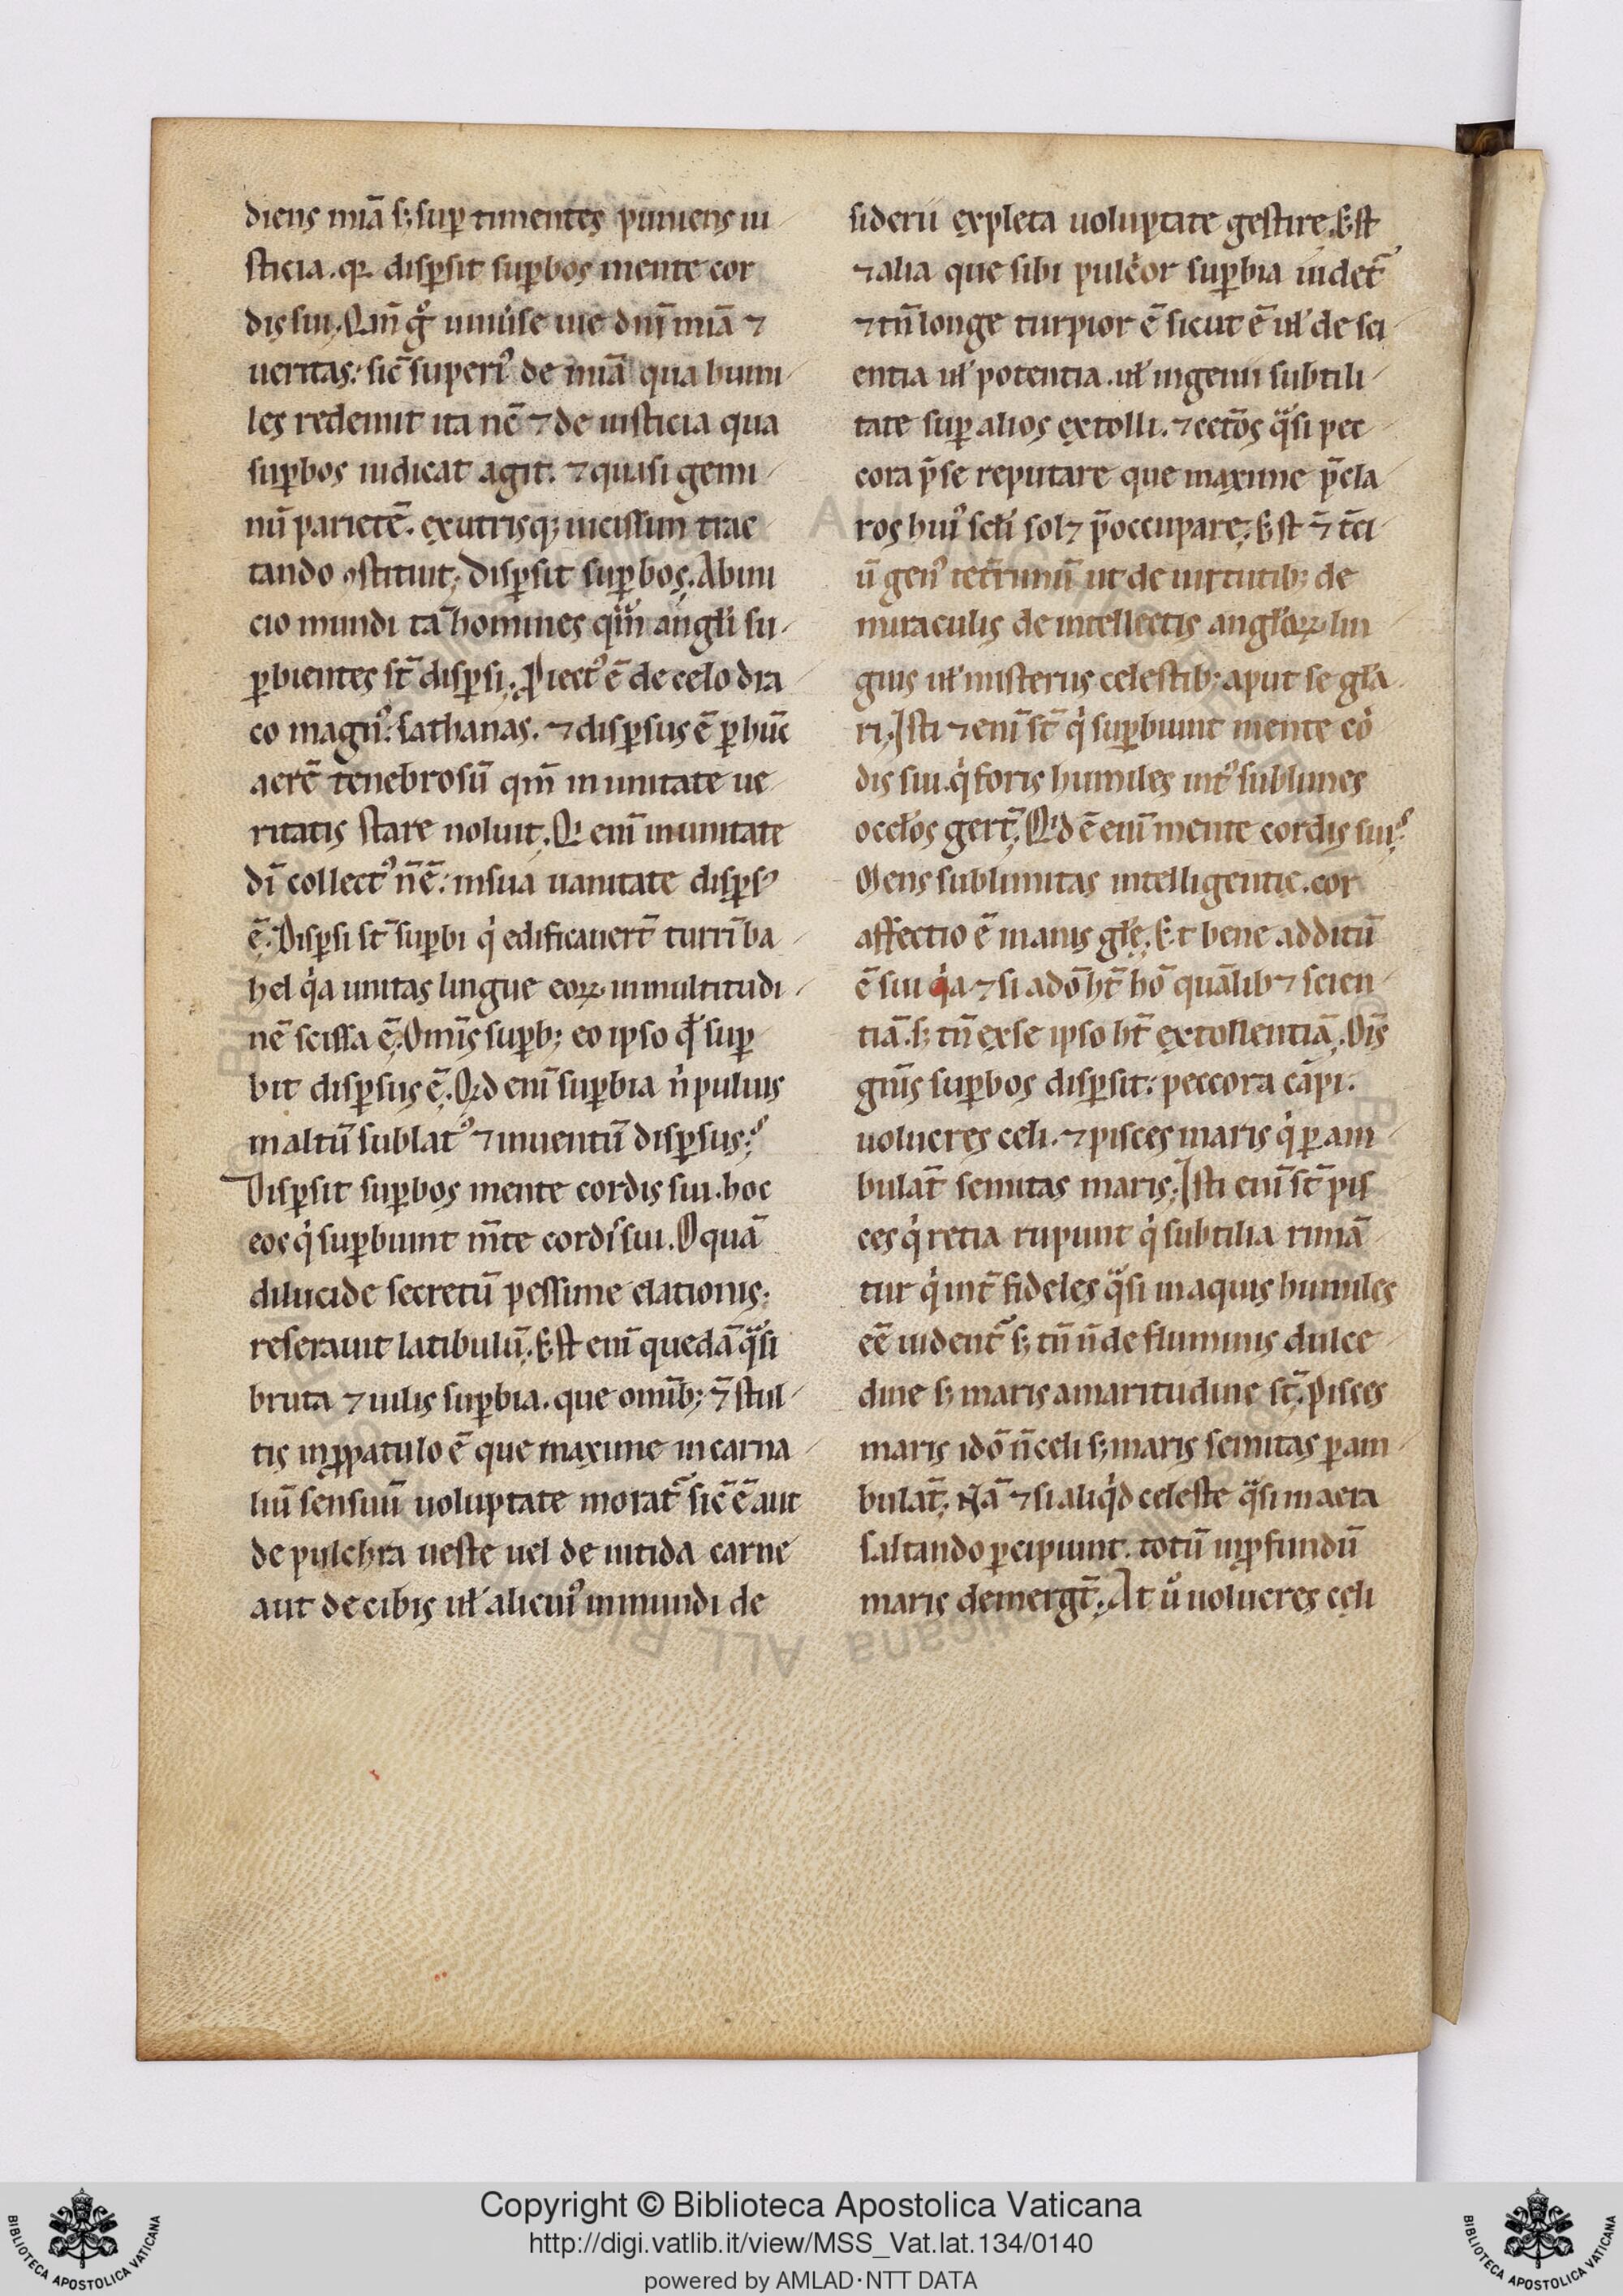 diens miā s; sup timentes puniens iu
sticia. qr dispsit supbos mente cor
dis sui. Qm̄ gͦ uniuise uie dnī miā ⁊
ueritas: sic̄ superiꝰ de miā qua humi
les redemit ita nc̄ ⁊ de iusticia qua
supbos iudicat agit. ⁊ quasi gemi
nū parietē. exutrisq; uicissim trac
tando ꝯstituit; Dispsit supbos. Abini
cio mundi tā homines qm̄ angli su
pbientes st̄ dispsi; Piectꝰ ē de celo dra
co magnꝰ. sathanas. ⁊ dispsus ē p hūc
aerē tenebrosū qm̄ in unitate ue
ritatis stare noluit; Qi enī inunitate
dī collectꝰ n̄ ē: insua uanitate dispsꝰ
ē. Dispsi st̄ supbi qi edificauert̄ turrī ba
bel qia unitas lingue eoꝝ inmultitudi
nē scissa ē; Omīs supb; eo ipso qd sup
bit dispsus ē. Qid enī supbia ni puluis
inaltū sublatꝰ ⁊ inuentū dispsus;
Dispsit supbos mente cordis sui. hoc
eos qi supbiunt m̄te cordis sui. O quā
dilucide secretū pessime elationis;
reserauit latibulū; Est enī quedā qasi
bruta ⁊ uilis supbia. que omīb; ⁊̄ stul
tis inppatulo ē que maxime incarna
liū sensuū uoluptate morat̄ sic̄ ē aut
de pulchra ueste uel de nitida carne
aut decibis ul alicuiꝰ inmundi de
siderii expleta uoluptate gestire. Est
⁊ alia que sibi pulcior supbia uidet̄
⁊ tn̄ longe turpior ē sicut ē ul de sci
entia ul potentia. ul ingenii subtili
tate sup alios extolli. ⁊ cetōs qasi pec
cora p̄ se reputare que maxime p̄cla
ros huiꝰ scli sol⁊ p̄occupare; Est ⁊̄ tci
ū genꝰ tet̄rimū ut de uirtutib; de
miraculis de intellectis angloꝝ lin
guis ul misteriis celestib; aput se gla
ri; Isti ⁊ enī st̄ qi supbiunt mente co
dis sui. qi foris humiles intꝰ sublimes
oclos gert̄; Qid ē enī mente cordis sui;
Mens sublimitas intelligentie. cor
affectio ē inanis gle; Et bene additū
ē sui qia ⁊ si adō ht̄ hō quālib⁊ scien
tiā. s; tn̄ exse ipso ht̄ extollentiā; Oīs
gn̄is supbos dispsit: peccora cāpi.
uolucres celi. ⁊ pisces maris qi p am
bulāt semitas maris; Isti enī st̄ pis
ces qi retia rupunt qi subtilia rimā
tur qi int̄ fideles qasi inaquis humiles
eē uident̄ s; tn̄ n̄ de fluminis dulce
dine s; maris amaritudine st̄; Pisces
maris idō n̄ celi s; maris semitas p am
bulāt; Nā ⁊ si aliqid celeste qasi inaera
saltando pcipiunt. totū inpfundū
maris demergt̄; At uͦ uolucres celi
Copyright © Biblioteca Apostolica Vaticana
http://digi.vatlib.it/view/MSS_Vat.lat.134/0140
powered by AMLAD·NTT DATA